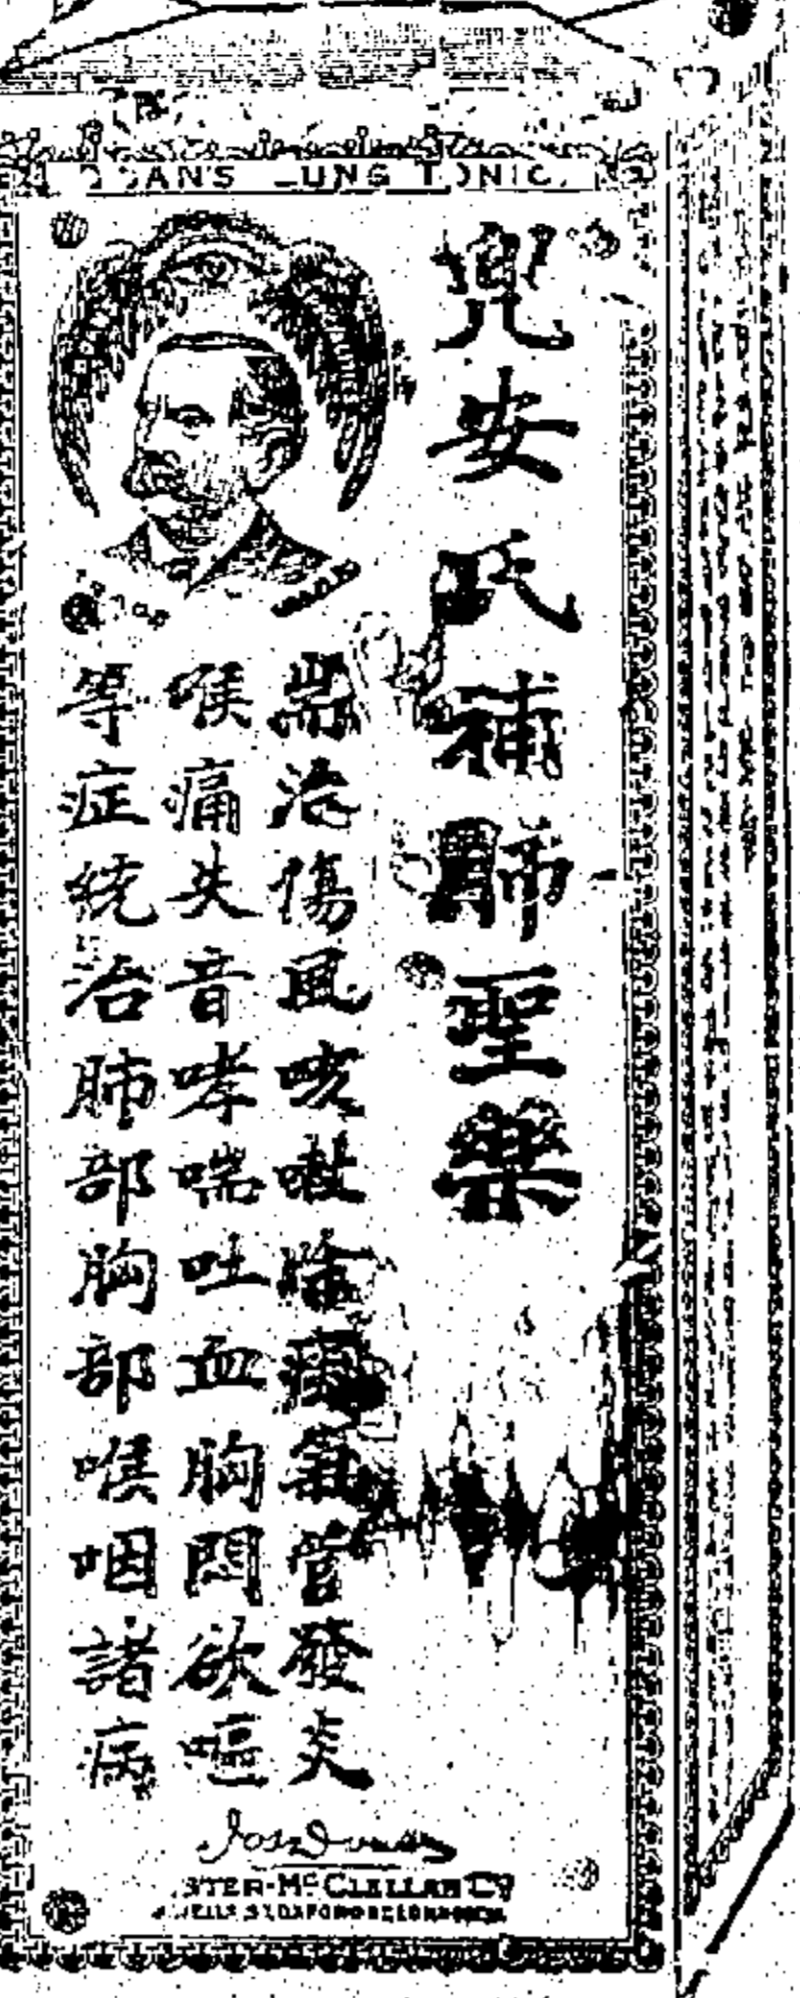 LUNG TONIC.
兜安氏補肺聖藥
耑治傷風咳嗽氣管發炎
喉痛失音哮喘吐血胸悶欲嘔
等症統治肺部胸部喉咽諸病
McCLELLAN Co